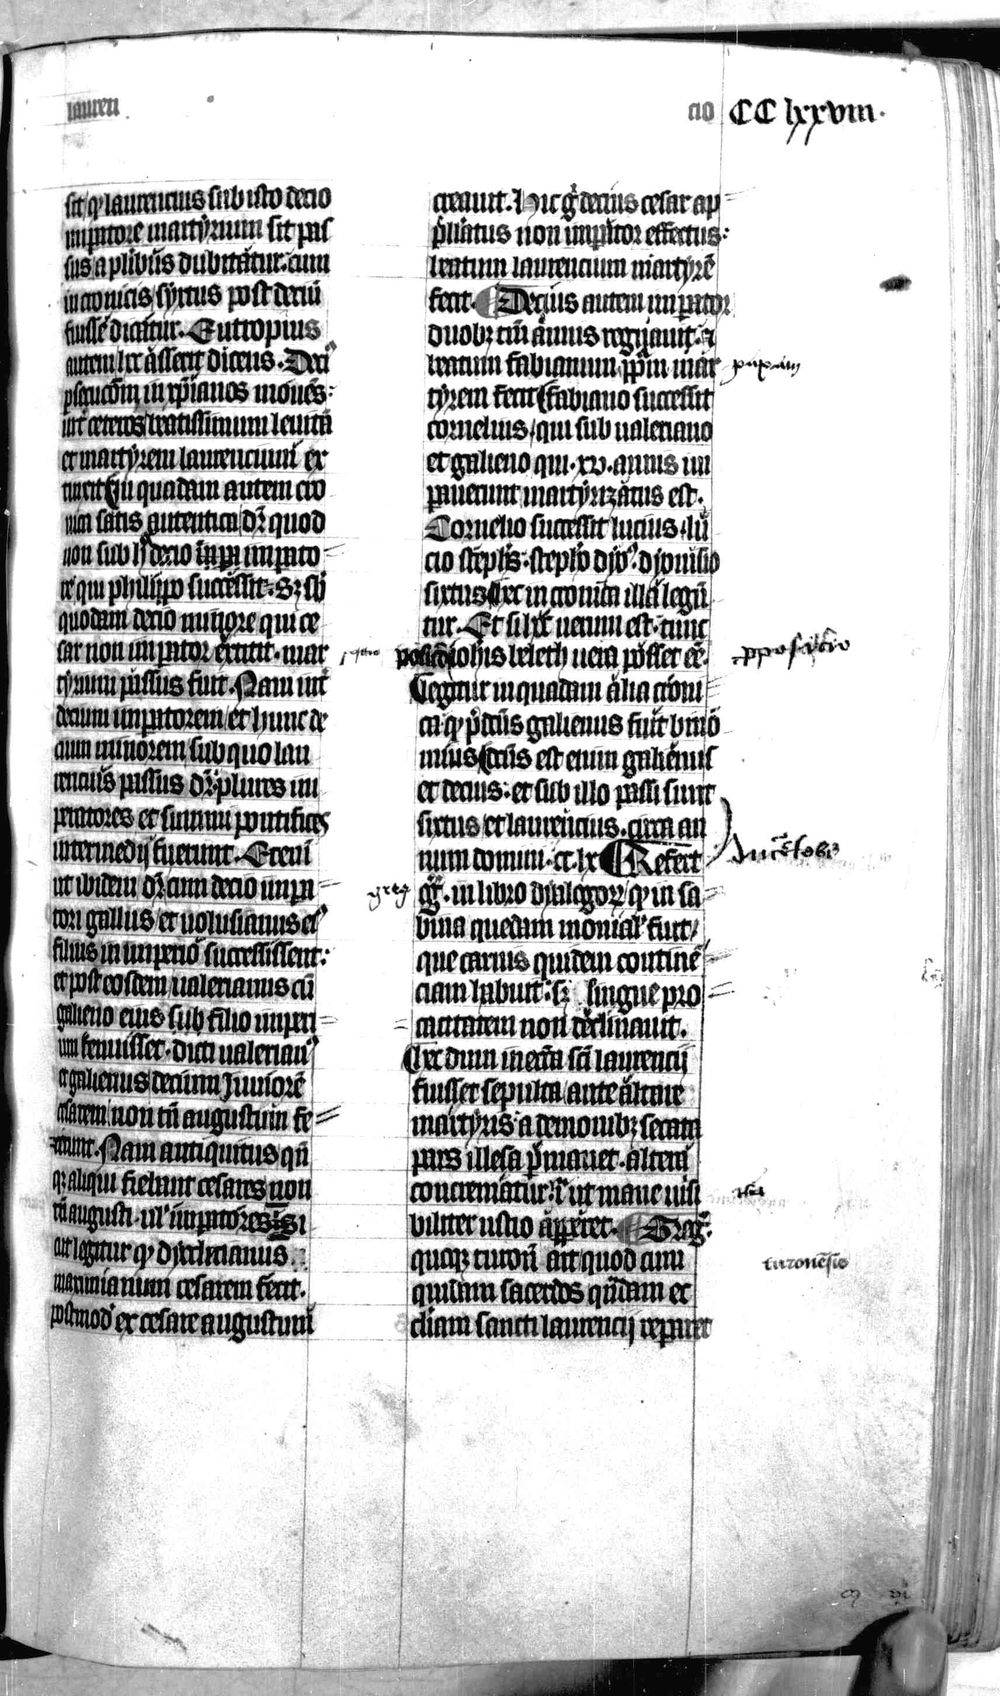 lauren
cio CC lxxviii.
sit qͥ laurencius sub isto decio
imꝑatore martyrium sit pas
sus a plibus dubitatur. cum
in cronicis syxtus post deciū
fuisse dicatur. Eutropius
autem hec asserit dicens. Deciꝰ
ꝑsecucōem in xp̄ianos mouens:
int̄ ceteros beatissimum leuitā
et martyrem laurencium ex
tinxit In quadam autem cro
nica satis autentica dr̄ quod
non sub h̄ decio imꝑato
re qui philippo successit. Sꝫ sub
quodam decio minore qui ce
sar non imꝑator extitit. mar
tyrium passus fuit. Nam int̄
decium imꝑatorem et hunc de
cium minorem sub quo lau
rencius passus dr̄. plures im
ꝑatores et summi pontifices
intermedij fuerunt. Eteni
ut ibidem dr̄ cum decio imꝑa
tori gallus et uolusianus eiꝰ
filius in imperio successissent:
et post eosdem ualerianus cū
galieno eius sub filio imperi
um tenuisset. dicti ualerianꝰ
et galienus decium Juniorē
cesarem non tn̄ augustum fe
cerunt. Nam antiquitus qn̄
qꝫ aliqui fiebant cesares non
tn̄ augusti. ul' imꝑatores Si
cut legitur qͥ dyocletianus
maximianum cesarem fecit.
postmodꝰ ex cesare augustum
creauit. Hic gͦ decius cesar ap
p̄llatus non imꝑator effectus:
beatum laurencium martyrē
fecit. Decius autem imꝑator
duobꝫ tm̄ annis regnauit. ⁊
beatum fabianum ppm̄ mar
papam
tyrem fecit fabiano successit
cornelius, qui sub ualeriano
et galieno qui .xv. annis im
ꝑauerunt martyrizatus est.
Cornelio successit lucius. lu
cio steph̄s. stepho dyoꝰ. dyonisio
sixtus hec in cronica illa legū
tur. Et si h̄ uerum est. tunc
iohīs beleth uera posset eē.
pposicio
Legitur in quadam alia croni
ca qͥ p̄dc̄us galienus fuit bino
mius dc̄us est enim galienus
et decius: et sub illo passi sunt
sixtus et laurencius. circa an
num domini. cc. lx Refert
greg
gͬ. in libro dyalogoꝝ qͥ in sa
bina quedam monialꝭ fuit,
que carnis quidem continē
ciam habuit. sꝫ lingue pro
cacitatem non declinauit.
Hec dum in ecc̄a sc̄i laurencij
fuisset sepulta ante altare
martyris a demonibꝫ secata
pars illesa ꝑmanet. altera
concrematur. ita ut mane uisi
biliter ustio appͣeret. Greg̃.
quoqꝫ turon̄ ait quod cum
turonēsis
quidam sacerdos quādam ec
cliam sancti laurencij reꝑaret